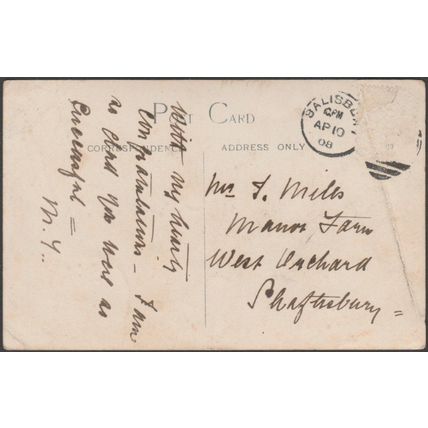 POST CARD
CORRESPONDENCE
ADDRESS ONLY
SALISBURY
6 PM
AP 10
08
With my hearty
Congratulations – I am
so glad you were as
Successful =
M. Y..
Mr. F. Miles
Manor Farm
West Orchard
Shaftesbury =